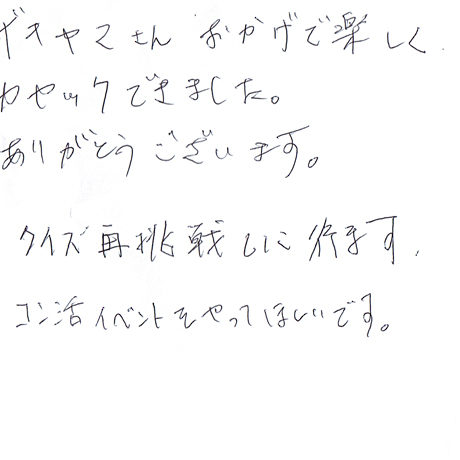 ゲキヤマさん おかげで楽しく
カヤックできました。
ありがとうございます。
クイズ再挑戦しに行きます。
コン活イベントをやってほしいです。